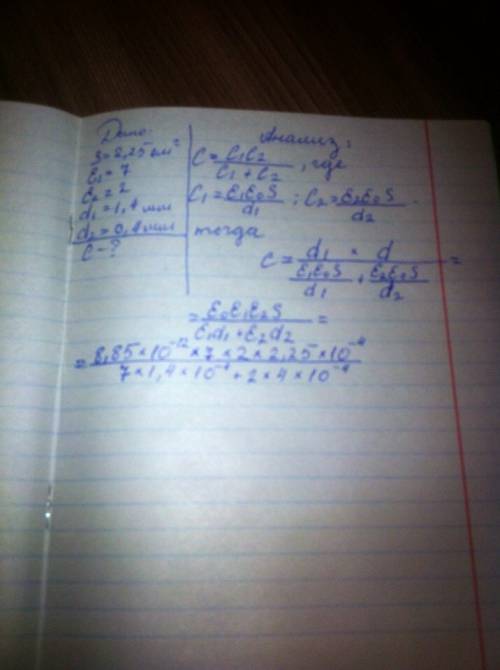 Дано:
S=2,25 см²
ε₁=7
ε₂=2
d₁=1,4 мм
d₂=0,4 мм
C-?
Анализ:
C=C₁C₂/C₁+C₂, где
C₁=ε₁ε₀S/d₁; C₂=ε₂ε₀S/d₂.
тогда
C=d₁ × d/ε₁ε₀S/d₁+ε₂ε₀S/d₂=
=ε₀ε₁ε₂S/ε₁d₁+ε₂d₂=
=8,85×10⁻¹²×7×2×2,25×10⁻⁴/7×1,4×10⁻⁴+2×4×10⁻⁴